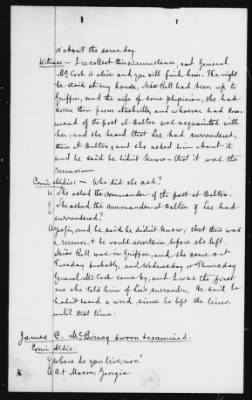 or about the same day.
Witness:- I recollect this circumstance, and General
McCook is alive and you will find him. The night
he staid at my house, Miss Bell had been up to
Griffin, and the wife of some physician, she had
come then from Nashville, and whoever had com-
mand of the post at Dalton was acquainted with
her, and she heard that Lee had surrendered,
then at Dalton, and she asked him about it
and he said he didn't know - that it was the
rumor -
Comr. Aldis:- Who did she ask?
A. She asked the commander of the post at Dalton.
Q. She asked the commander at Dalton if Lee had
surrendered?
A. Yes sir, and he said he didn't know, that there was
a rumor & he would ascertain before she left.
Miss Bell was in Griffin, and she came out
Tuesday probably, and Wednesday or Thursday
General McCook came by, and I was the first
one who told him of Lee's surrender. He said he
hadn't heard a word since he left the lines,
until that time.
James C. McBurney sworn & examined.
Comr Aldis.
Q. Where do you live now?
A. At Macon, Georgia